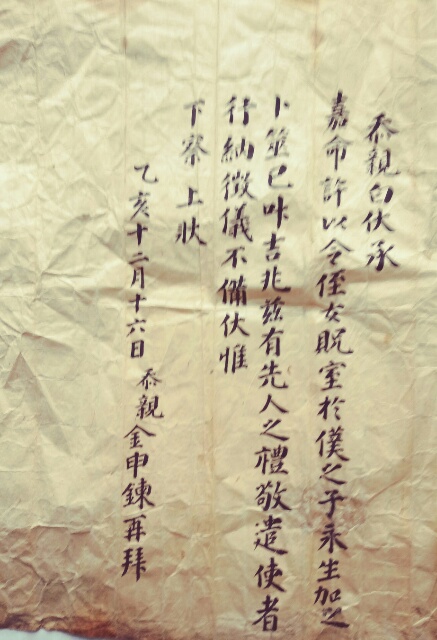 忝親白伏承
嘉命許以令侄女貺室於僕之子永生加之
卜筮已叶吉兆玆有先人之禮敬遣使者
行納徵儀不備伏惟
下察上狀
乙亥十二月十六日 忝親金申鍊再拜